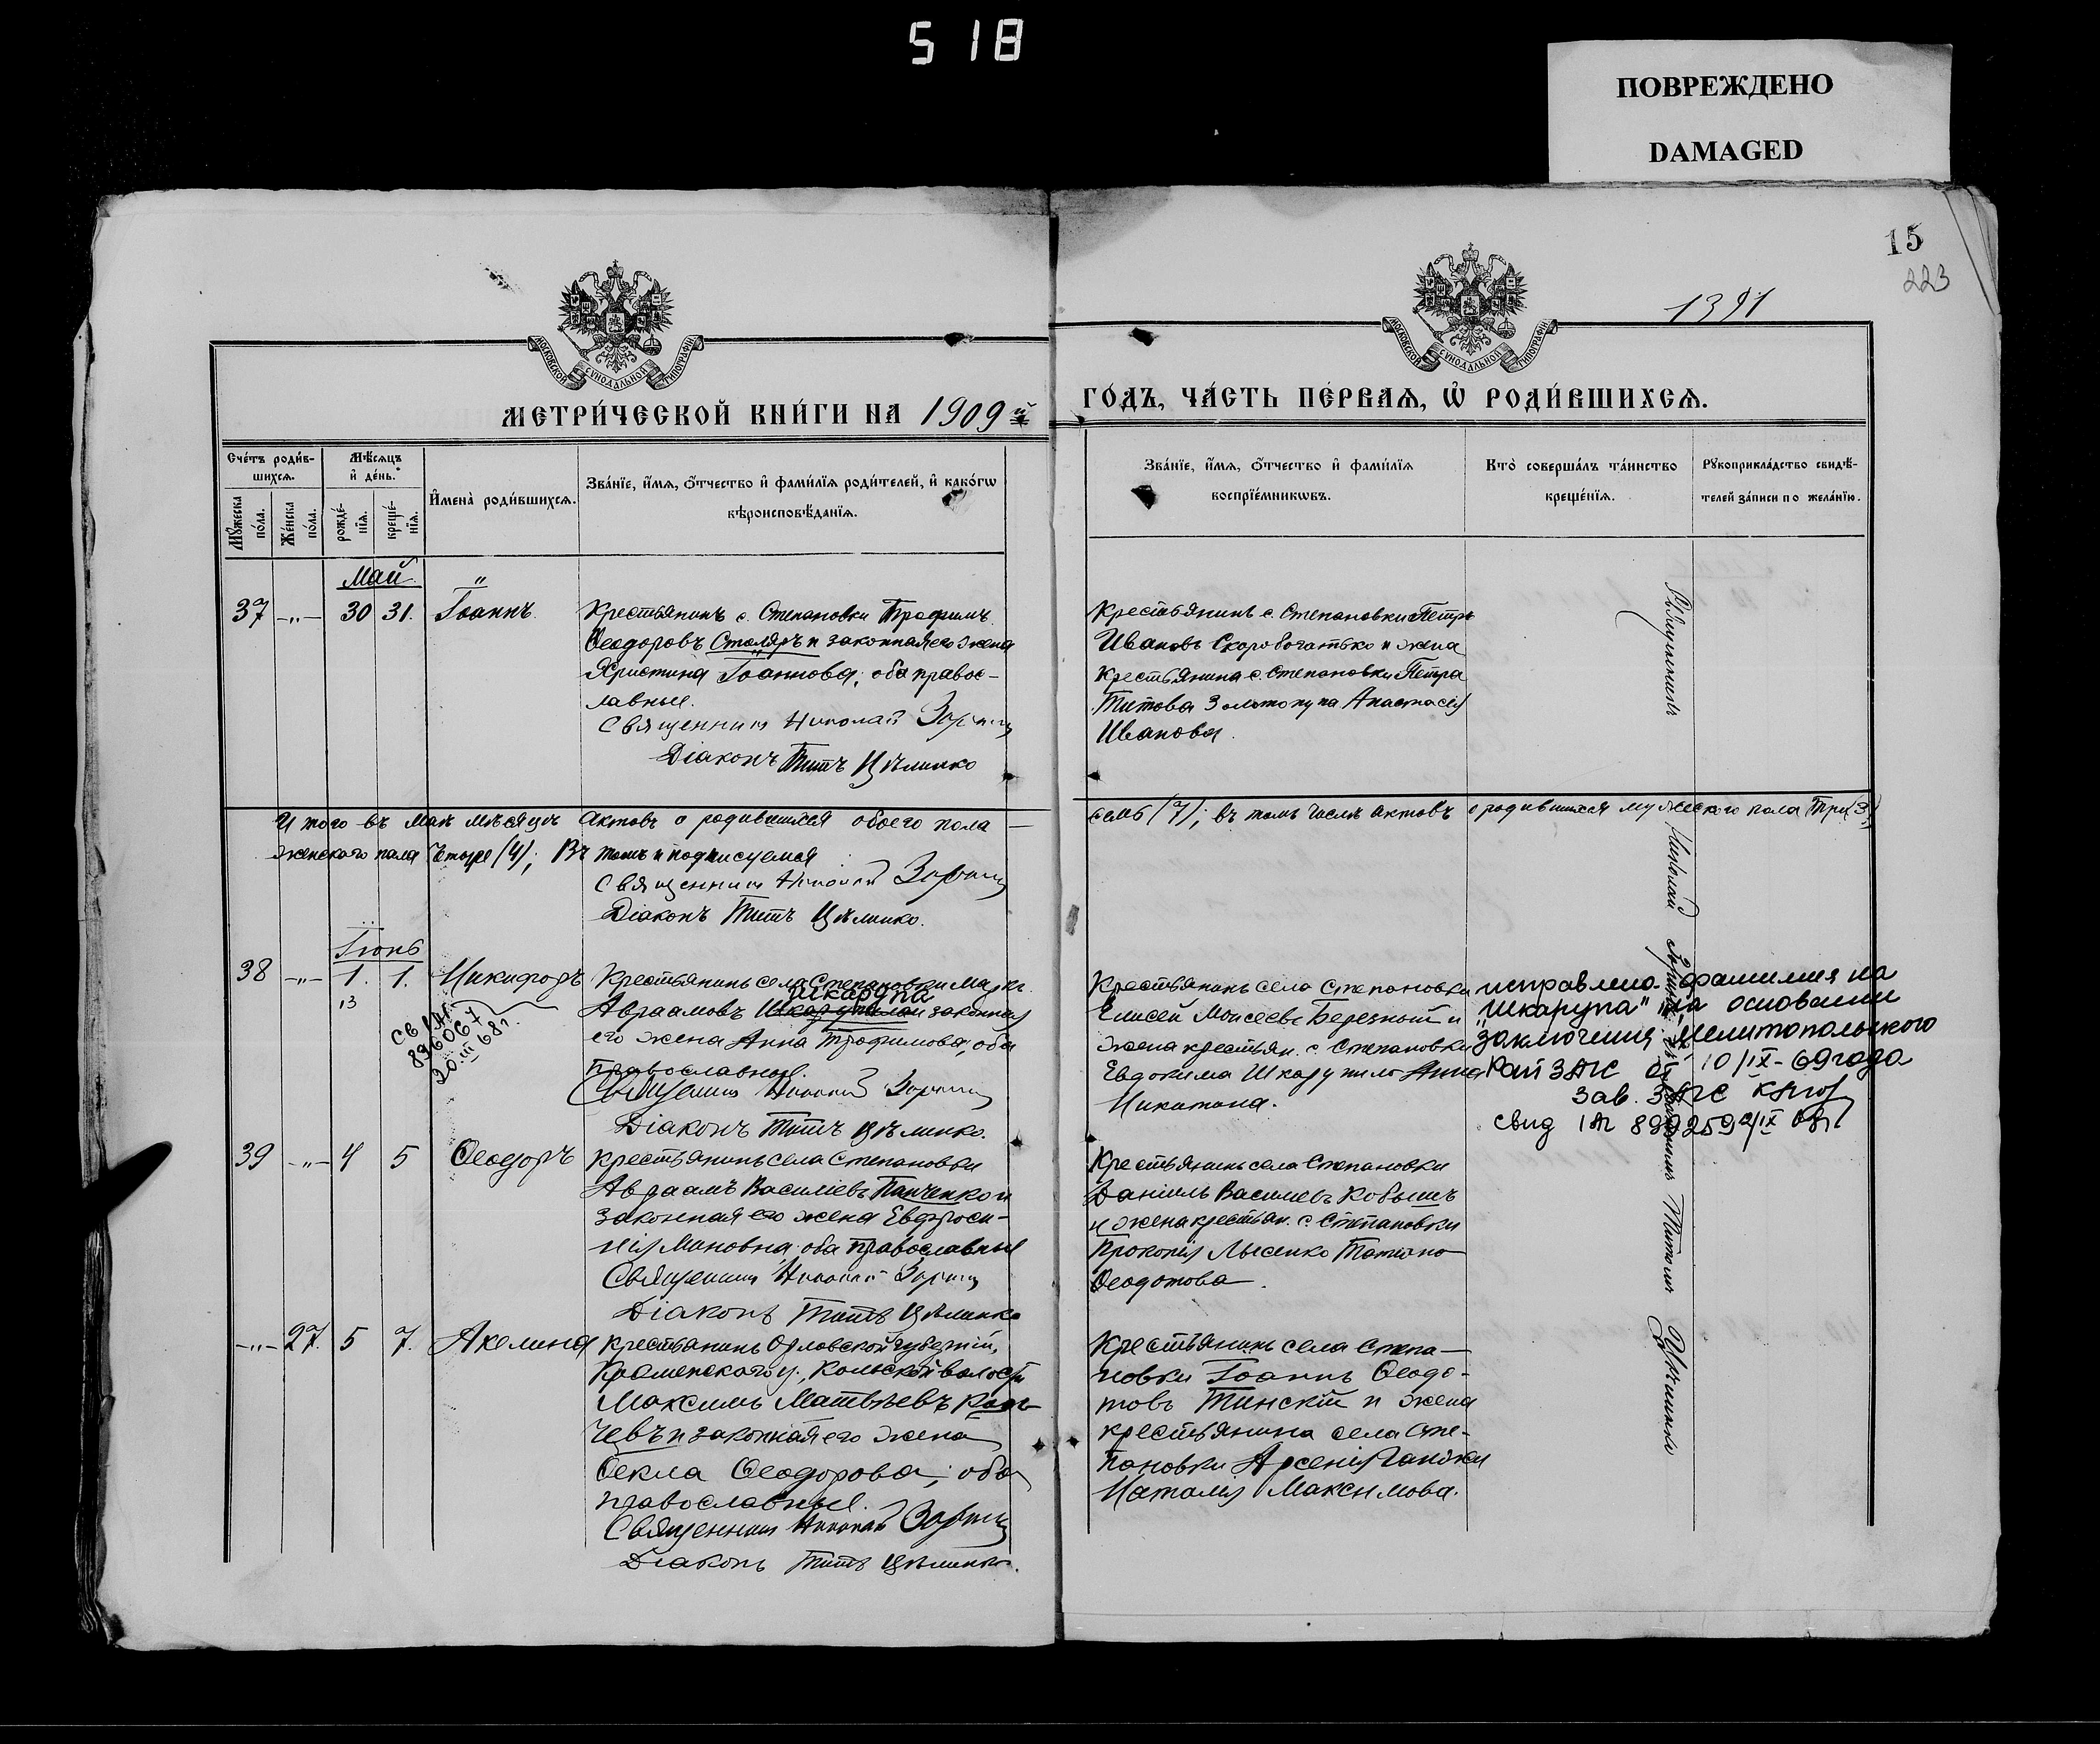 518
ПОВРЕЖДЕНО
DAMAGED
15
223
1391
МОСКОВСКОЙ СУНОДАЛЬНОЙ ТИПОГРАФІИ
МОСКОВСКОЙ СУНОДАЛЬНОЙ ТИПОГРАФІИ
МЕТРИ́ЧЕСКОЙ КНИ́ГИ НА 1909 й
ГОДЪ, ЧА́СТЬ ПЕ́РВАѦ, Ѡ҆ РОДИ́ВШИХСѦ.
Сче́тъ роди́в-
шихсѧ.
Мꙋ́жеска по́ла.
Же́нска по́ла.
Мѣ́сѧцъ
и҆ де́нь.
рожде́-нїѧ.
креще́-нїѧ.
И҆мена̀ роди́вшихсѧ.
Зва́нїе, и҆́мѧ, ѻ҆́тчество и҆ фами́лїѧ роди́телей, и҆ како́гѡ
вѣроисповѣ́данїѧ.
Зва́нїе, и҆́мѧ, ѻ҆́тчество и҆ фами́лїѧ
воспрїе́мникѡвъ.
Кто̀ соверша́лъ та́инство
креще́нїѧ.
Рꙋкоприкла́дство свидѣ́-
телей за́писи по жела́нїю.
Май
37 -„- 30 31. Іоаннъ.
Крестьянинъ с. Степановки Трофимъ
Ѳеодоровъ Столяръ и законная его жена
Христина Іоаннова, оба правос-
лавные.
Священникъ Николай
Діаконъ Титъ Цѣлинко
Крестьянинъ с. Степановки Петръ
Ивановъ Скоробогатько и жена
крестьянина с. Степановки Петра
Титова Золотопупа Анастасія
Иванова.
Итого въ Маѣ мѣсяцѣ актовъ о родившихся обоего пола —
семь (7); въ томъ числѣ актовъ о родившихся мужеского пола три (3)
женского пола четыре (4); Въ томъ и подписуемся
Священникъ Николай
Діаконъ Титъ Цѣлинко.
Іюнь
38 -„- 1. 1. Никифоръ
13
св IА
896067
20 III 68 г.
Крестьянинъ села Степановки
Шкарупа
Авраамовъ и законная
его жена Анна Трофимова, оба
православные.
Священникъ Николай
Діаконъ Титъ Цѣлинко.
Крестьянинъ села Степановки
Елисей Моисеевъ Березный и
жена крестьян. с. Степановки
Евдокима Шкарупило Анна
Никитина.
исправлено фамилия на
„Шкарупа" на основании
заключения Мелитопольского
Рай ЗАГС от 10/IX-69 года
Зав. ЗАГС
свид IА
39 -„- 4 5 Ѳеодоръ
Крестьянинъ села Степановки
Авраамъ Василіевъ Панченко и
законная его жена Евфроси-
нія оба православные
Священникъ Николай
Діаконъ Титъ Цѣлинко
Крестьянинъ села Степановки
Даніилъ Василіевъ Кобышъ
и жена крестьян. с. Степановки
Прокопія Лысенко Татіана
Ѳеодотова.
-„- 27. 5 7. Акелина
Крестьянинъ Орловской губерніи,
у., волости
Максимъ Матвѣевъ
и законная его жена
Ѳекла Ѳеодорова, оба
православные.
Священникъ Николай
Діаконъ Титъ Цѣлинко.
Крестьянинъ села Степа-
новки Іоаннъ Ѳеодо-
товъ Тинскій и жена
крестьянина села Сте-
пановки Арсенія
Наталія Максимова.
Священникъ Николай Титомъ Цѣлинко